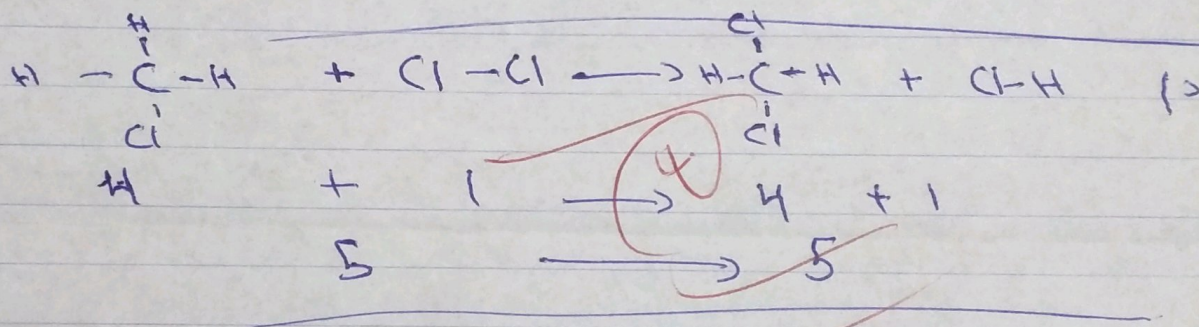 H Cl
H - C - H + Cl - Cl → H - C - H + Cl - H
Cl Cl
4 + 1 → 4 + 1
5 → 5